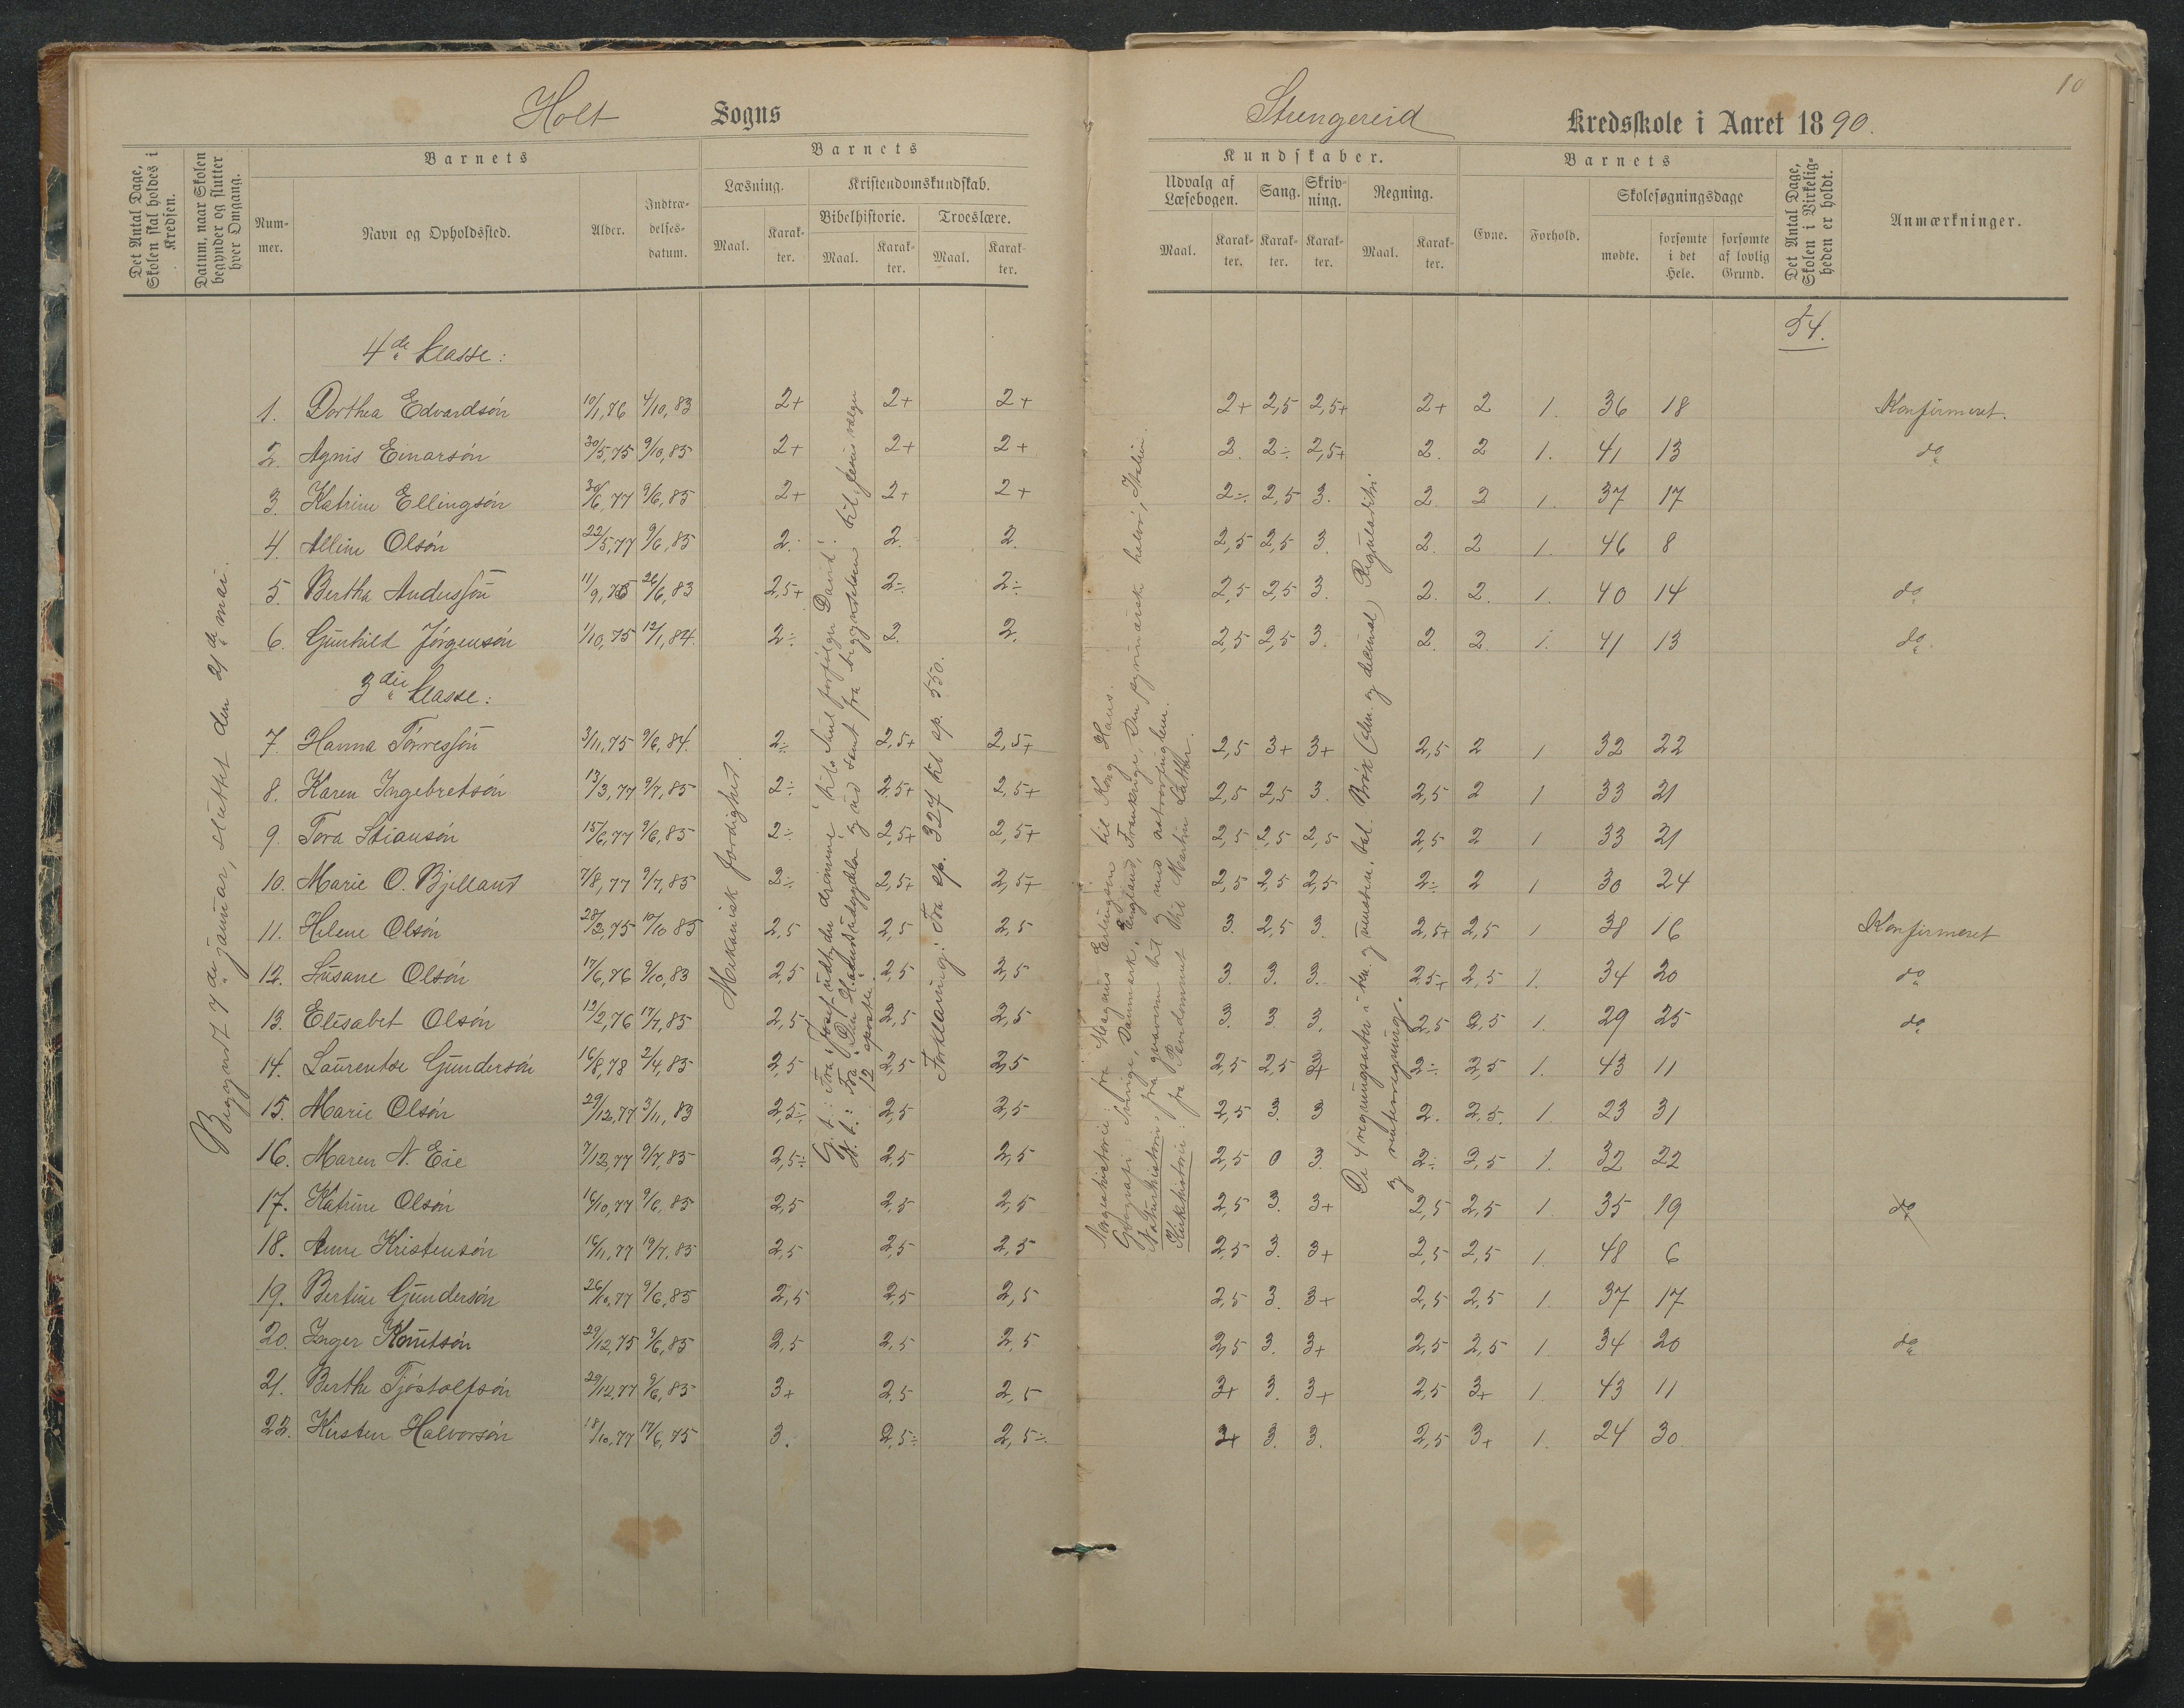 10
Holt Sogns
Strengereid Kredsskole i Aaret 1890.
Det Antal Dage, Skolen skal holdes i Kredsen.
Datum, naar Skolen begynder og slutter hver Omgang.
Barnets
Nummer.
Navn og Opholdssted.
Alder.
Indtrædelsesdatum.
Barnets
Læsning.
Maal. Karakter.
Kristendomskundskab.
Bibelhistorie.
Maal. Karakter.
Troeslære.
Maal. Karakter.
Kundskaber.
Udvalg af Læsebogen.
Maal. Karakter.
Sang.
Karakter.
Skrivning.
Karakter.
Regning.
Maal. Karakter.
Barnets
Evne. Forhold.
Skolesøgningsdage
mødte. forsømte i det Hele. forsømte af lovlig Grund.
Det Antal Dage, Skolen i Virkeligheden er holdt.
Anmærkninger.
54.
Begyndt 7de januar, sluttet den 21de mai.
Mekanisk færdighed.
G. t.: Fra "Josef udtyder drømme" til "Saul forfølger David".
Forklaring: Fra sp. 327 til sp. 550.
Naturhistorie:
Kirkehistorie: fra til Martin Luther.
De 4 regningsarter i
og renteregning.
4de klasse:
1. Dorthea Edvardsön 10/1,76 4/10,83 2+ 2+ 2+ 2+ 2,5 2,5+ 2+ 2 1. 36 18 Konfirmeret.
2. Agnis Einarsön 30/5,75 9/10,85 2+ 2+ 2+ 2. 2÷ 2,5+ 2. 2 1. 41 13 do
3. Katrine Ellingsön 30/6,77 9/6,85 2+ 2+ 2+ 2÷ 2,5 3. 2 2 1. 37 17
4. Alline Olsön 22/5,77 9/6,85 2. 2. 2. 2,5 2,5 3. 2. 2 1. 46 8
5. Bertha Andersson 11/9,75 26/6,83 2,5+ 2÷ 2÷ 2,5 2,5 3. 2. 2. 1. 40 14 do
6. Gunhild Jörgensön 1/10,75 12/1,84. 2÷ 2. 2. 2,5 2,5 3. 2. 2. 1. 41 13 do
3die klasse:
7. Hanna Törressön 3/11,75 9/6,84. 2÷ 2,5+ 2,5+ 2,5 3+ 3+ 2,5 2 1 32 22
8. Karen Ingebretsön 13/3,77 9/7,85 2÷ 2,5+ 2,5+ 2,5 2,5 3. 2,5 2 1 33 21
9. Tora Stiansön 15/6,77 9/6,85 2÷ 2,5+ 2,5+ 2,5 2,5 2,5 2,5 2 1 33 21
10. Marie O. Bjelland 7/8,77 9/7,85 2÷ 2,5+ 2,5+ 2,5 2,5 2,5 2÷ 2 1 30 24
11. Helene Olsön 28/3,75 10/10 85 2,5 2,5 2,5 3. 2,5 3. 2,5+ 2,5 1 38 16 Konfirmeret
12. Susane Olsön 17/6,76 9/10,83 2,5 2,5 2,5 3. 3. 3. 2,5+ 2,5 1. 34 20 do
13. Elisabet Olsön 12/2,76 17/7,85 2,5 2,5 2,5 3. 3. 3. 2,5 2,5 1. 29 25 do
14. Laurentse Gundersön 16/8,78 2/4,85 2,5 2,5 2,5 2,5 2,5 3+ 2÷ 2,5 1. 43 11
15. Marie Olsön 29/12,77 3/11,83 2,5÷ 2,5 2,5 2,5 3. 3 2. 2,5. 1. 23 31
16. Maren N. Eie 7/12,77 9/7,85 2,5÷ 2,5 2,5 2,5 0 3. 2÷ 2,5 1. 32 22
17. Katrine Olsön 16/10,77 9/6,85 2,5 2,5 2,5 2,5 3. 3+ 2,5 2,5 1. 35 19 do
18. Anne Kristensön 16/11,77 19/7,85 2,5 2,5 2,5 2,5 3. 3+ 2,5 2,5 1. 48 6
19. Bertine Gundersön 26/10,77 9/6,85 2,5 2,5 2,5 2,5 3. 3+ 2,5 2,5 1. 37 17
20. Inger Knutsön 29/12,75 9/6,85 2,5 2,5 2,5 2,5 3. 3+ 2,5 2,5 1. 34 20 do
21. Berthe Tjöstolfsön 29/12,77 9/6,85 3+ 2,5 2,5 3+ 3. 3+ 2,5 3+ 1. 43 11
22. Kirsten Halvorsön 18/10,77 17/6,75 3. 2,5÷ 2,5÷ 3+ 3. 3. 2,5 3+ 1. 24 30